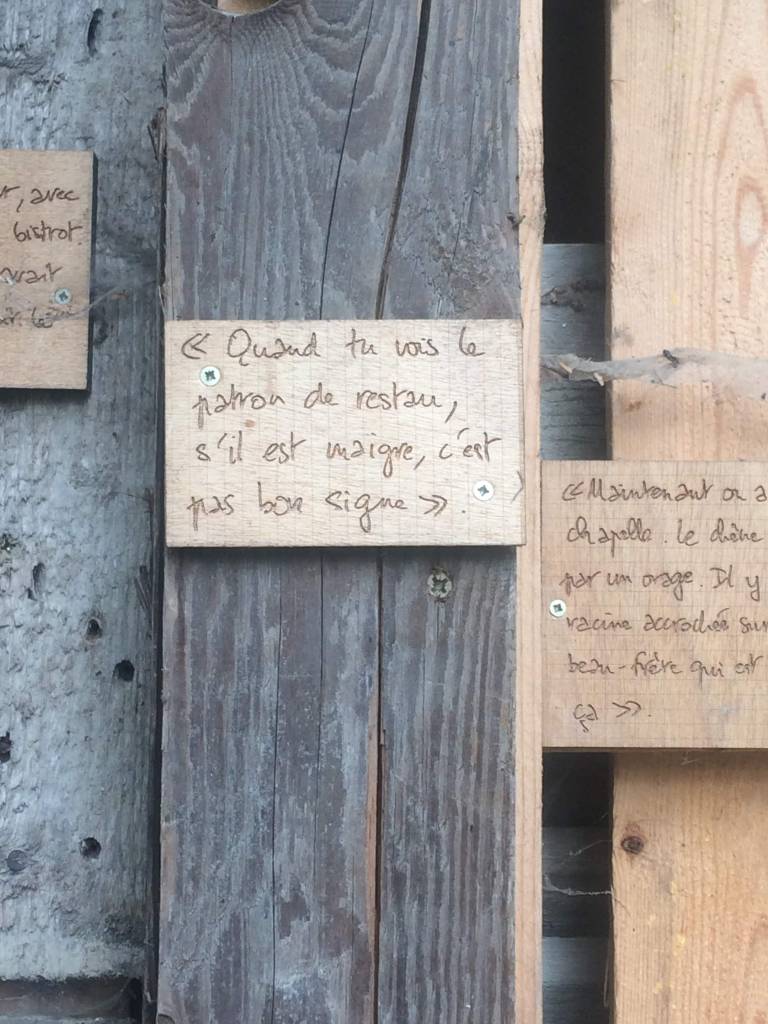 , avec
bistrot
« Quand tu vois le
patron de restau,
s'il est maigre, c'est
pas bon signe ».
« Maintenant on a
chapelle. Le chêne
par un orage. Il y
racine accrochée sur
beau-frère qui est
ça ».